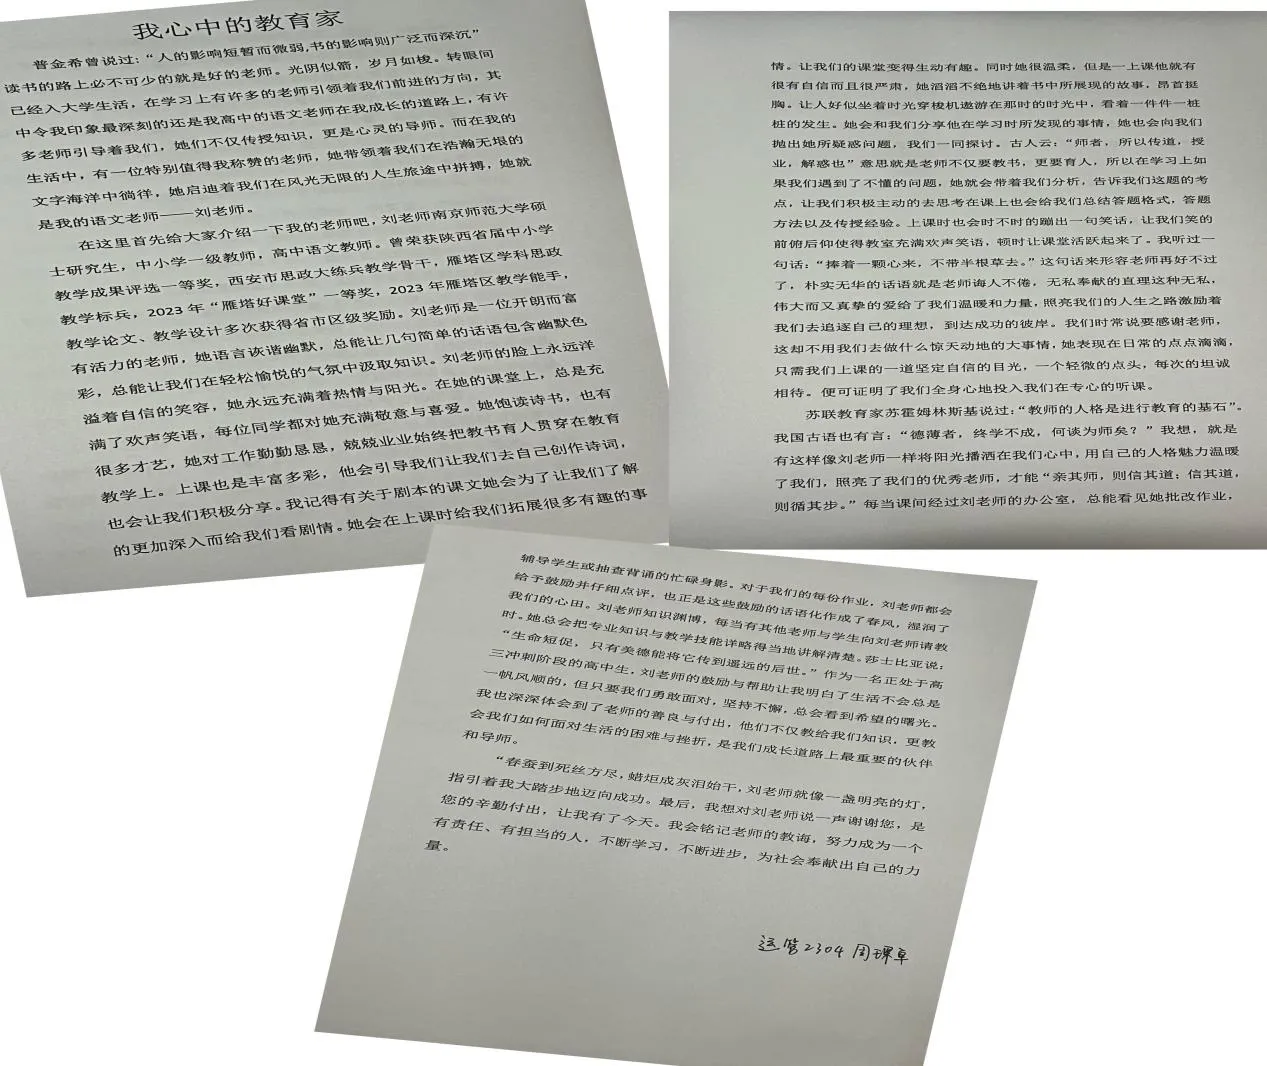 我心中的教育家
普金希曾说过：“人的影响短暂而微弱,书的影响则广泛而深沉”
读书的路上必不可少的就是好的老师。光阴似箭，岁月如梭。转眼间
已经入大学生活，在学习上有许多的老师引领着我们前进的方向，其
中令我印象最深刻的还是我高中的语文老师在我成长的道路上，有许
多老师引导着我们，她们不仅传授知识，更是心灵的导师。而在我的
生活中，有一位特别值得我称赞的老师，她带领着我们在浩瀚无垠的
文字海洋中徜徉，她启迪着我们在风光无限的人生旅途中拼搏，她就
是我的语文老师——刘老师。
在这里首先给大家介绍一下我的老师吧，刘老师南京师范大学硕
士研究生，中小学一级教师，高中语文教师。曾荣获陕西省届中小学
教学成果评选一等奖，西安市思政大练兵教学骨干，雁塔区学科思政
教学标兵，2023 年“雁塔好课堂”一等奖，2023 年雁塔区教学能手，
教学论文、教学设计多次获得省市区级奖励。刘老师是一位开朗而富
有活力的老师，她语言诙谐幽默，总能让几句简单的话语包含幽默色
彩，总能让我们在轻松愉悦的气氛中汲取知识。刘老师的脸上永远洋
溢着自信的笑容，她永远充满着热情与阳光。在她的课堂上，总是充
满了欢声笑语，每位同学都对她充满敬意与喜爱。她饱读诗书，也有
很多才艺，她对工作勤勤恳恳，兢兢业业始终把教书育人贯穿在教育
教学上。上课也是丰富多彩，他会引导我们让我们去自己创作诗词，
也会让我们积极分享。我记得有关于剧本的课文她会为了让我们了解
的更加深入而给我们看剧情。她会在上课时给我们拓展很多有趣的事
情。让我们的课堂变得生动有趣。同时她很温柔，但是一上课他就有
很有自信而且很严肃，她滔滔不绝地讲着书中所展现的故事，昂首挺
胸。让人好似坐着时光穿梭机遨游在那时的时光中，看着一件件一桩
桩的发生。她会和我们分享他在学习时所发现的事情，她也会向我们
抛出她所疑惑问题，我们一同探讨。古人云：“师者，所以传道，授
业，解惑也”意思就是老师不仅要教书，更要育人，所以在学习上如
果我们遇到了不懂的问题，她就会带着我们分析，告诉我们这题的考
点，让我们积极主动的去思考在课上也会给我们总结答题格式，答题
方法以及传授经验。上课时也会时不时的蹦出一句笑话，让我们笑的
前俯后仰使得教室充满欢声笑语，顿时让课堂活跃起来了。我听过一
句话：“捧着一颗心来，不带半根草去。”这句话来形容老师再好不过
了，朴实无华的话语就是老师诲人不倦，无私奉献的直理这种无私，
伟大而又真挚的爱给了我们温暖和力量，照亮我们的人生之路激励着
我们去追逐自己的理想，到达成功的彼岸。我们时常说要感谢老师，
这却不用我们去做什么惊天动地的大事情，她表现在日常的点点滴滴，
只需我们上课的一道坚定自信的目光，一个轻微的点头，每次的坦诚
相待。便可证明了我们全身心地投入我们在专心的听课。
苏联教育家苏霍姆林斯基说过：“教师的人格是进行教育的基石”。
我国古语也有言：“德薄者，终学不成，何谈为师矣？”我想，就是
有这样像刘老师一样将阳光播洒在我们心中，用自己的人格魅力温暖
了我们，照亮了我们的优秀老师，才能“亲其师，则信其道；信其道，
则循其步。”每当课间经过刘老师的办公室，总能看见她批改作业，
辅导学生或抽查背诵的忙碌身影。对于我们的每份作业，刘老师都会
给予鼓励并仔细点评，也正是这些鼓励的话语化作成了春风，湿润了
我们的心田。刘老师知识渊博，每当有其他老师与学生向刘老师请教
时。她总会把专业知识与教学技能详略得当地讲解清楚。莎士比亚说：
“生命短促，只有美德能将它传到遥远的后世。”作为一名正处于高
三冲刺阶段的高中生，刘老师的鼓励与帮助让我明白了生活不会总是
一帆风顺的，但只要我们勇敢面对，坚持不懈，总会看到希望的曙光。
我也深深体会到了老师的善良与付出，他们不仅教给我们知识，更教
会我们如何面对生活的困难与挫折，是我们成长道路上最重要的伙伴
和导师。
“春蚕到死丝方尽，蜡炬成灰泪始干，刘老师就像一盏明亮的灯，
指引着我大踏步地迈向成功。最后，我想对刘老师说一声谢谢您，是
您的辛勤付出，让我有了今天。我会铭记老师的教诲，努力成为一个
有责任、有担当的人，不断学习，不断进步，为社会奉献出自己的力
量。
运管2304 周璟卓